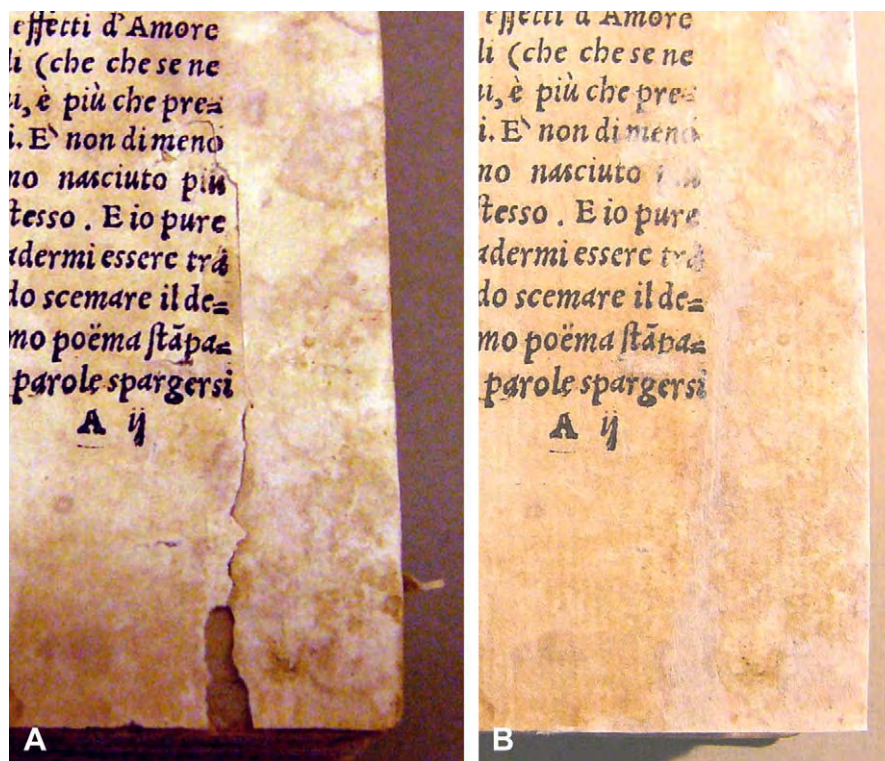 effetti d'Amore
li (che che se ne
ui, è più che pre=
i. E` non di meno
no nasciuto più
stesso. E io pure
adermi essere trā
do scemare il de=
mo poëma stāpa=
parole spargersi
A ij
A
effetti d'Amore
li (che che se ne
ui, è più che pre=
i. E` non di meno
no nasciuto
stesso. E io pure
adermi essere trā
do scemare il de=
mo poëma stāpa=
parole spargersi
A ij
B